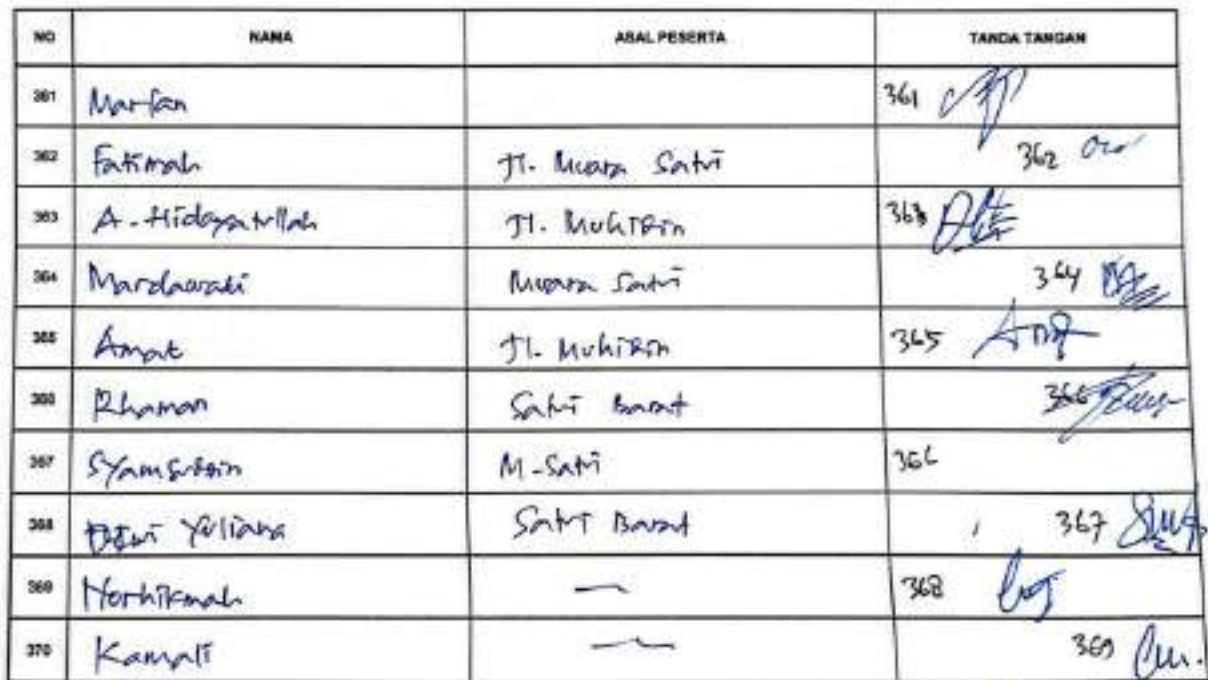 NO NAMA ASAL PESERTA TANDA TANGAN
361 Marfan 361
362 Fatimah Jl. Muara Satui 362
363 A. Hidayatullah Jl. Muhibin 363
364 Mardawati Muara Satui 364
365 Amat Jl. Muhibin 365
366 Rhaman Satui Barat 366
367 Syamsudin M-Satui 366
368 Dewi Yuliana Satui Barat 367
369 Norhikmah — 368
370 Kamali — 369